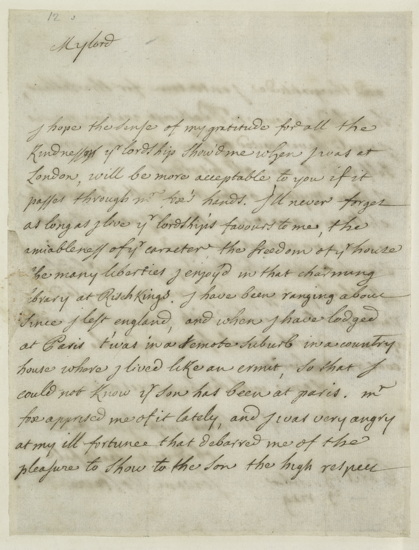 12
Mylord
I hope the sense of my gratitude for all the
Kindnesses yr lordship show'd me when I was at
London, will be more acceptable to you if it
passes through mr fox's hands. I'll never forget
as long as I live yr lordships favours to me, the
amiableness of yr caracter the freedom of yr house
the many liberties I enjoy'd in that charming
library at Rich Kings. I have been ranging about
since I left england, and when I have lodged
at Paris t'was in a remote suburb in a country
house where I lived like an ermit, so that I
could not know yr son has been at paris. mr
fox apprised me of it lately, and I was very angry
at my ill fortune that debarred me of the
pleasure to show to the son the high respect